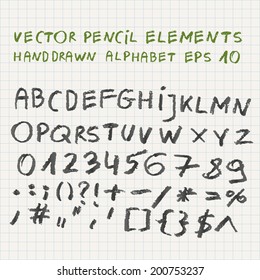 VECTOR PENCIL ELEMENTS
HANDDRAWN ALPHABET EPS 10
ABCDEFGHIjKLMN
OPQRSTUVWXYZ
0123456789
.:;¡()?!+-/*=%
'#"„[]{}$^
shutterstock.com · 200753237